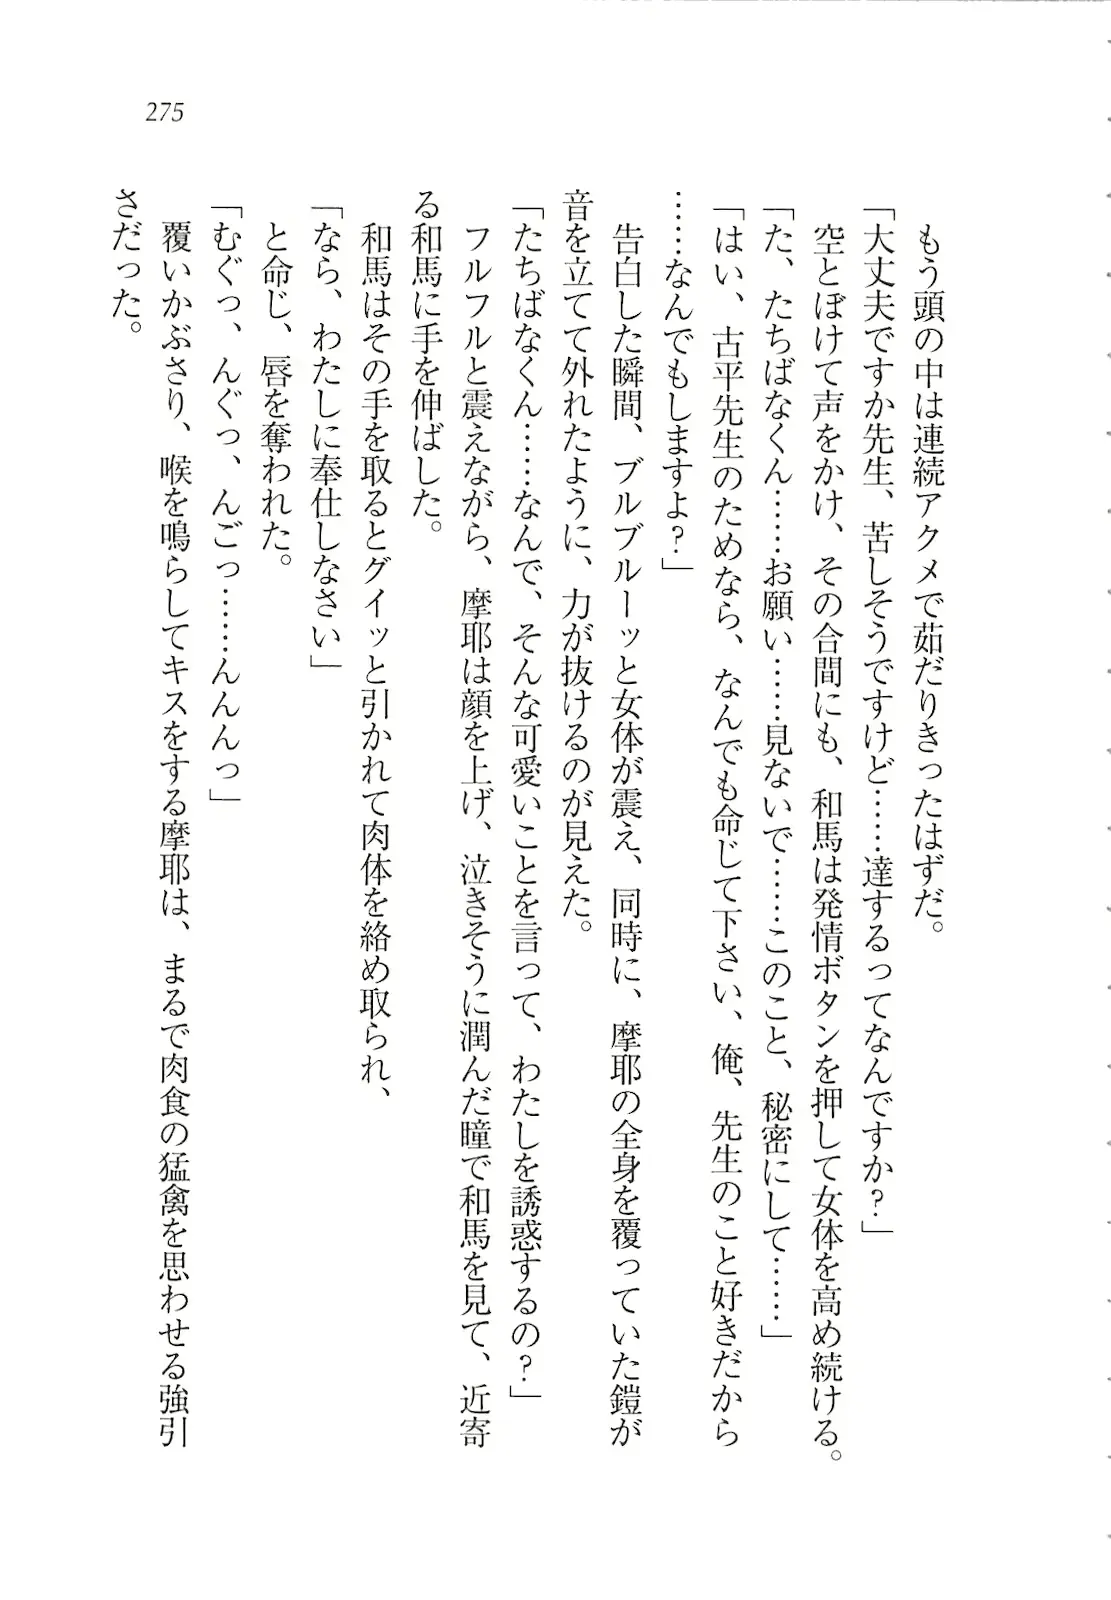 275
もう頭の中は連続アクメで茹だりきったはずだ。
「大丈夫ですか先生、苦しそうですけど……達するってなんですか？」
空とぼけて声をかけ、その合間にも、和馬は発情ボタンを押して女体を高め続ける。
「た、たちばなくん……お願い……見ないで……このこと、秘密にして……」
「はい、古平先生のためなら、なんでも命じて下さい、俺、先生のこと好きだから
……なんでもしますよ？」
告白した瞬間、ブルブルーッと女体が震え、同時に、摩耶の全身を覆っていた鎧が
音を立てて外れたように、力が抜けるのが見えた。
「たちばなくん……なんで、そんな可愛いことを言って、わたしを誘惑するの？」
フルフルと震えながら、摩耶は顔を上げ、泣きそうに潤んだ瞳で和馬を見て、近寄
る和馬に手を伸ばした。
和馬はその手を取るとグイッと引かれて肉体を絡め取られ、
「なら、わたしに奉仕しなさい」
と命じ、唇を奪われた。
「むぐっ、んぐっ、んごっ……んんんっ」
覆いかぶさり、喉を鳴らしてキスをする摩耶は、まるで肉食の猛禽を思わせる強引
さだった。